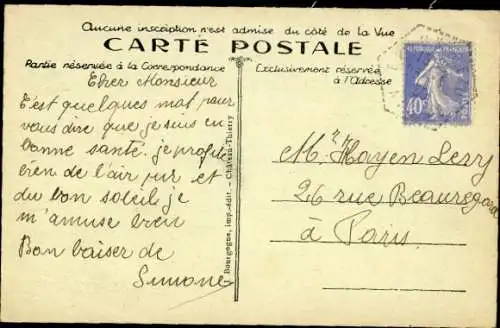 Aucune inscription n'est admise du côté de la Vue
CARTE POSTALE
Partie réservée à la Correspondance
Exclusivement réservée
à l'Adresse
Cher Monsieur
C'est quelques mot pour
vous dire que je suis en
bonne santé. je profite
bien de l'air pur et
du bon soleil je
m'amuse bien
Bon baiser de
Simone
Bourgogne, imp.-édit. - Château-Thierry
M. Hayen Levy
26 rue Beauregard
à Paris
REPUBLIQUE FRANCAISE
40c